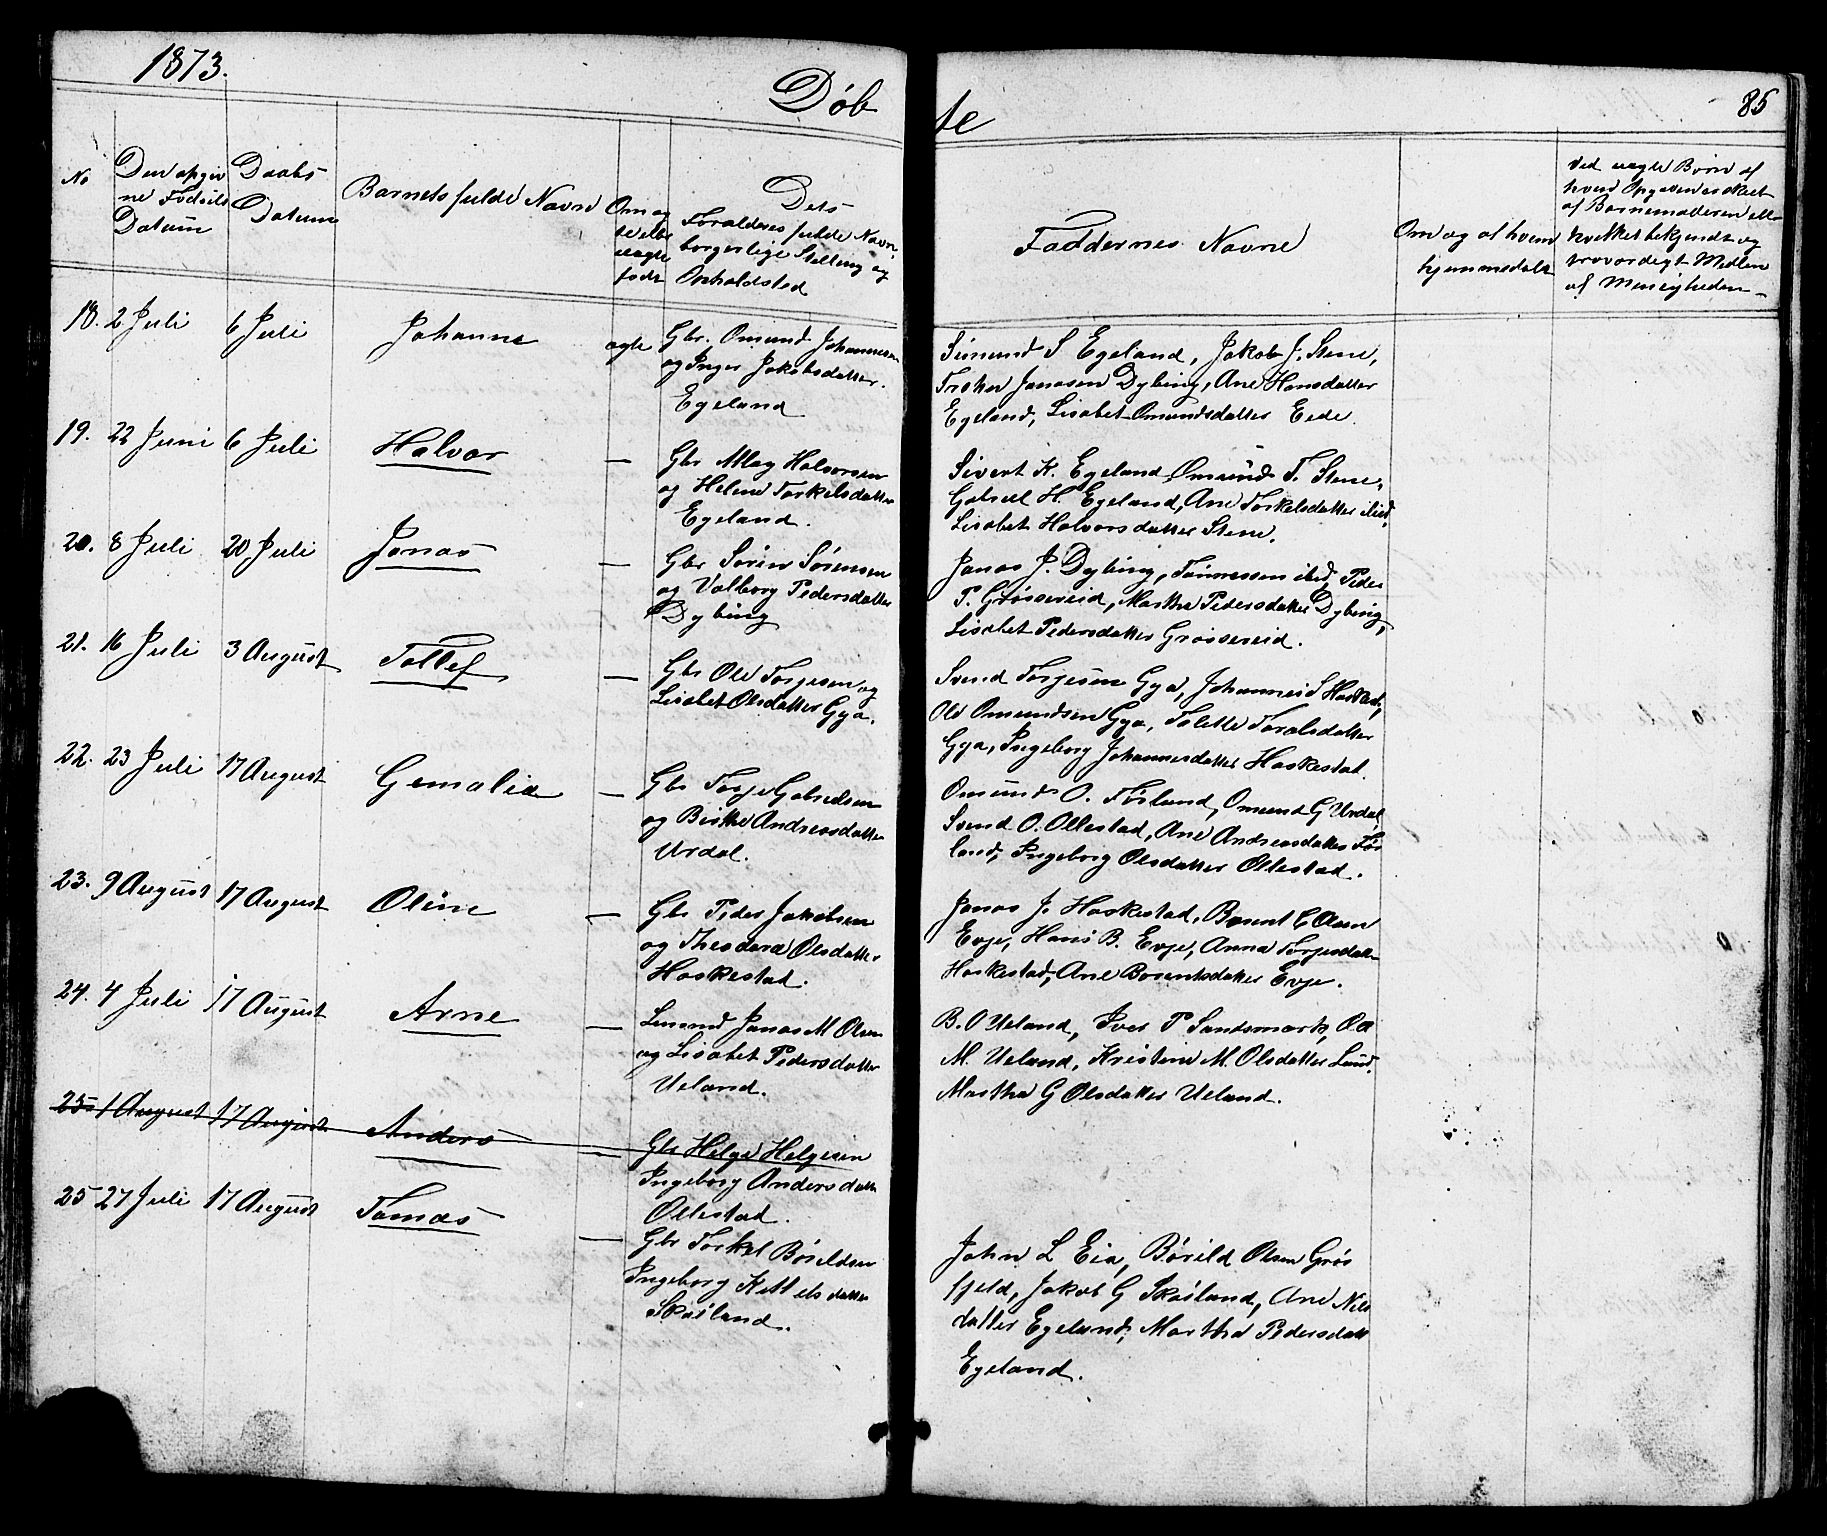 1873.
Døb
te
85
No
Den opgiv
ne Fødsels
Datum
Daabs
Datum
Barnets fulde Navne
Om æg
te eller
uægte
født
Dets
Forældres fulde Navn,
borgerlige Stilling og
Opholdsted
Faddernes Navne
Om og af hvem
hjemmedøbt
Ved uægte Børn af
hvem Opgaven er skeet
af Barnemoderen ell
hvilket bekjendt og
troværdigt Medlem
af Menigheden
18. 2 Juli 6 Juli Johanne ægte Gbr. Omund Johannesen
og Inger Jakobsdatter.
Egeland
Simund S Egeland, Jakob J. Stene,
Jonasen Dybing, Ane Hansdatter
Egeland, Lisabet Omundsdatter Eede.
19. 22 Juni 6 Juli Halvor — Gbr Halvorsen
og Helene Torkelsdatter
Egeland.
Sivert K. Egeland Omund T. Stene,
Gabriel H. Egeland, Ane Torkelsdatter ibid,
Lisabet Halvorsdatter Stene.
20. 8 Juli 20 Juli Jonas — Gbr Sören Sörensen
og Valborg Pedersdatter
Dybing
Jonas J. Dybing, Tönnessen ibid, Peder
P. Grøssereid, Martha Pedersdatter Dybing,
Lisabet Pedersdatter Grøssereid.
21. 16 Juli 3 August Tollef — Gbr Ole Torjesen og
Lisabet Olsdatter Gya.
Svend Torjesen Gya, Johannes S Haskest,
Ole Omundsen Gya, Tolette Taralsdatter
Gya, Ingeborg Johannesdatter Haskestad.
22. 23 Juli 17 August Gemalie — Gbr Torje Gabrielsen
og Andreasdatter
Urdal.
Omund O. Førland, Omund G Urdal,
Svend O. Ollestad, Ane Andreasdatter Før
land, Ingeborg Olsdatter Ollestad.
23. 9 August 17 August Oline — Gbr Peder Jakobsen
og Theodora Olsdatter
Haskestad.
Jonas J. Haskestad, Berent C Olsen
Evje, Hans B. Evje, Anna Torjesdatter
Haskestad, Ane Berentsdatter Evje.
24. 4 Juli 17 August Arne — Lensmd Jonas M Olsen
og Lisabet Pedersdatter
Ueland.
B. O Ueland, Iver P Sandsmark, Ole
M. Ueland, Kristine M. Olsdatter Lund,
Martha G Olsdatter Ueland.
25 1 August 17 August Anders — Gbr Helge Helgesen
Ingeborg Andersdatter
Ollestad.
25 27 Juli 17 August Tomas — Gbr Torkel Børildsen
Ingeborg Kittelsdatter
Skaaland.
John L Eia, Børild Olsen Grøs
fjeld, Jakob G Skaaland, Ane Nils
datter Egeland, Martha Pedersdatt
Egeland.